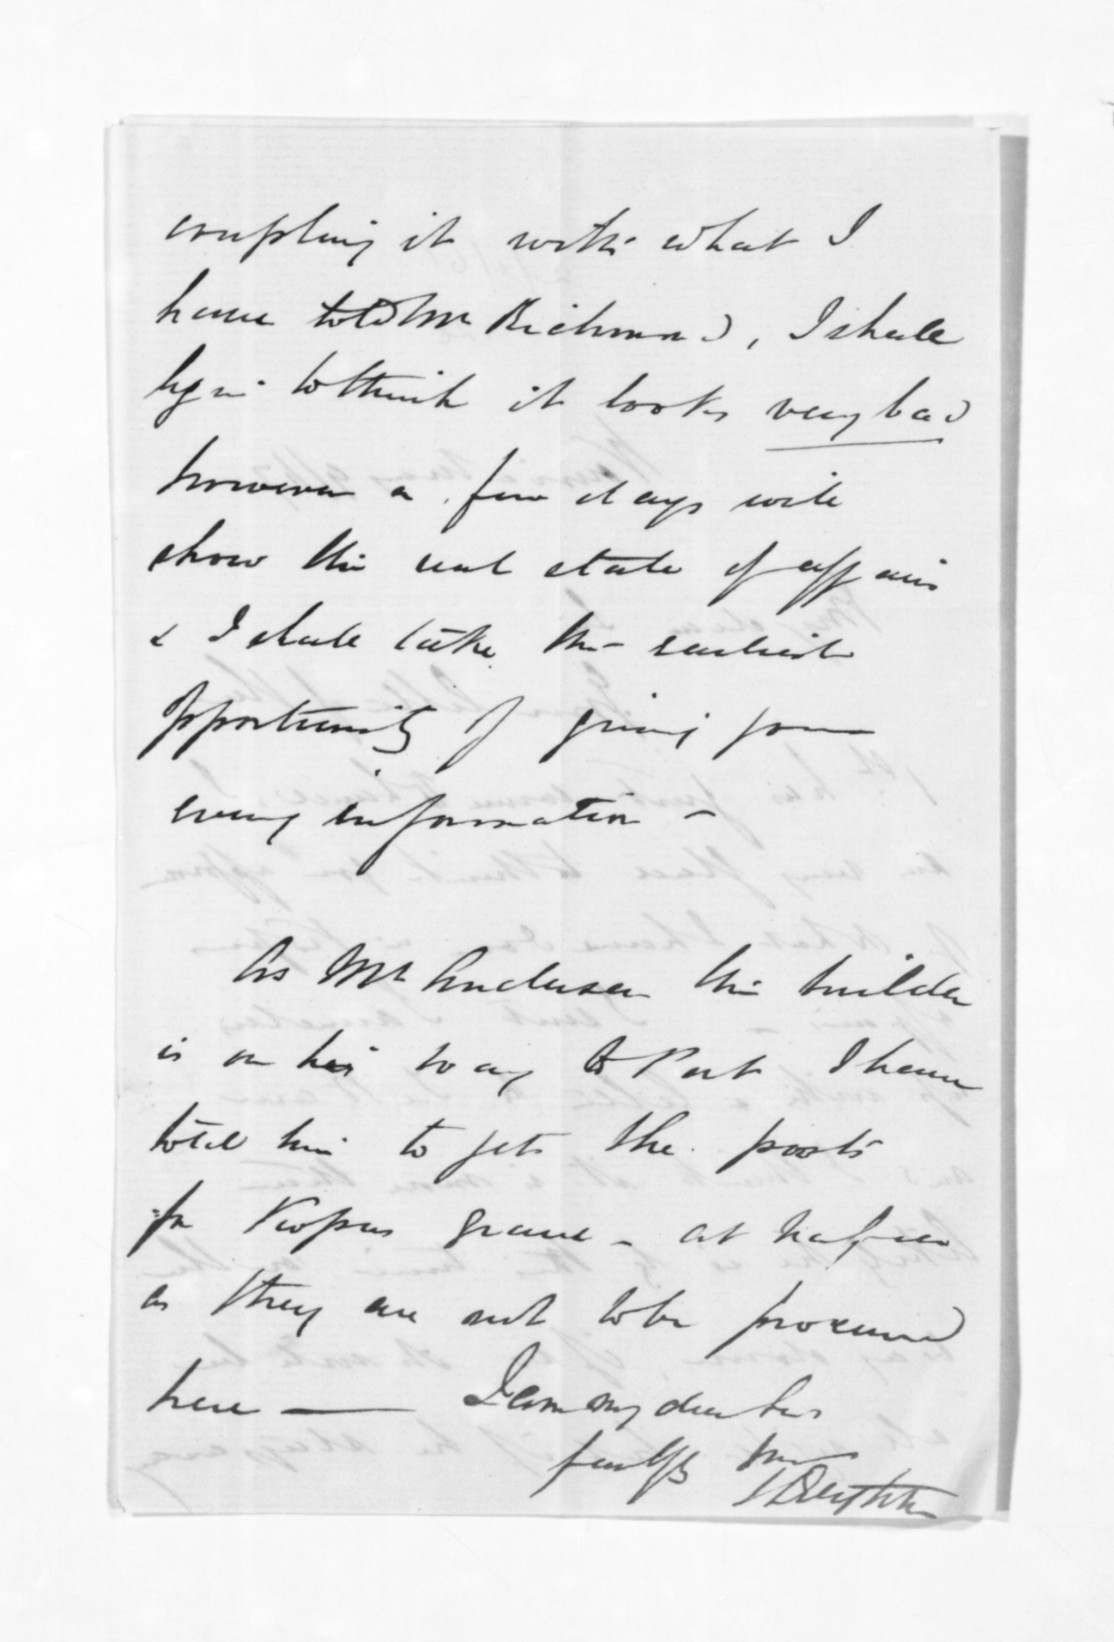 coupling it with what I
have told Mr Richmond, I shall
begin to think it looks very bad
however a few days will
show the real state of affairs
& I shall take the earliest
opportunity of giving you
every information -
As Mr Anderson the builder
is on his way to Port I have
told him to get the posts
for grave - at Napier
as they are not to be procured
here — I am my dear Sir
faithfy